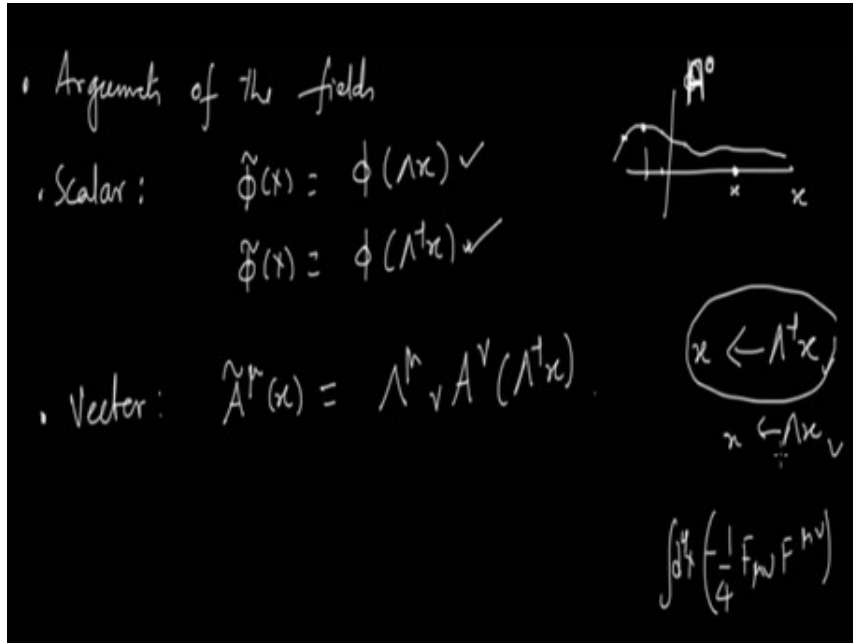 • Arguments of the fields
• Scalar : φ̃(x) = φ(Λx) ✓
φ̃(x) = φ(Λ⁻¹x) ✓
• Vector : Ã^μ(x) = Λ^μ_ν A^ν(Λ⁻¹x)
A⁰
x
x
x ← Λ⁻¹x
x ← Λx
∫d⁴x (-1/4 F_μν F^μν)